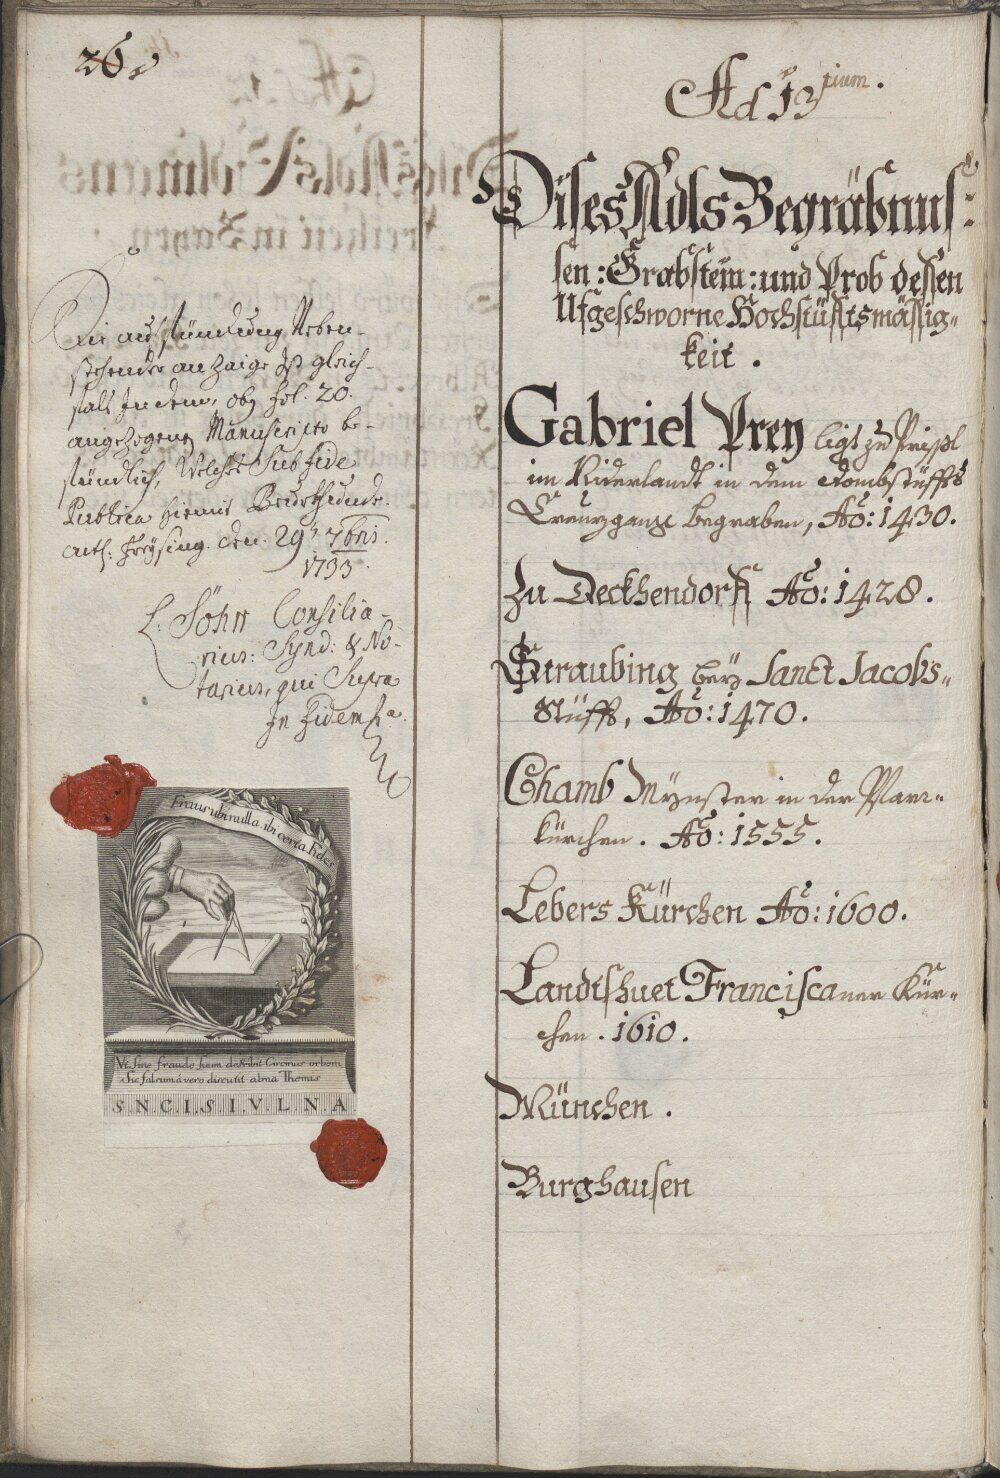 26.
Die auffündung Neben-
stehender anzaige Ist gleich-
fals In dem, obg fol. 20.
angezognen Manuscripto be-
fündlich, Welches Sub fide
Publica hiemit Beurkhunde.
Act: Freÿsing. den. 29t 7bris.
1733.
L: Söhn Consilia-
rius: Synd: & No-
tarius, qui Supra
In Fidem
Fraus ubi nulla ibi certa Fides
Vt sine fraude suum describit Circinus orbem
Sic falsum á vero discutit alma Themis
S. N. C. I. S. I. V. L. N. A
Ad 13tium.
Dises Adls Begräbnus:
sen: Grabstein: und Prob dessen
Ufgeschworne Hochstüfftsmässig-
keit.
Gabriel Prey ligt zu
im Niderlandt in dem Dombstüffts
Creuzgang begraben, Ao: 1430.
Zu Deckhendorff Ao: 1428.
Straubing beÿ Sanct Jacobs-
Stüfft, Ao: 1470.
Chamb Mÿnster in der Pfarr-
kürchen. Ao: 1555.
Lebers Kürchen Ao: 1600.
Landtshuet Franciscaner Kür-
chen. 1610.
München.
Burghausen